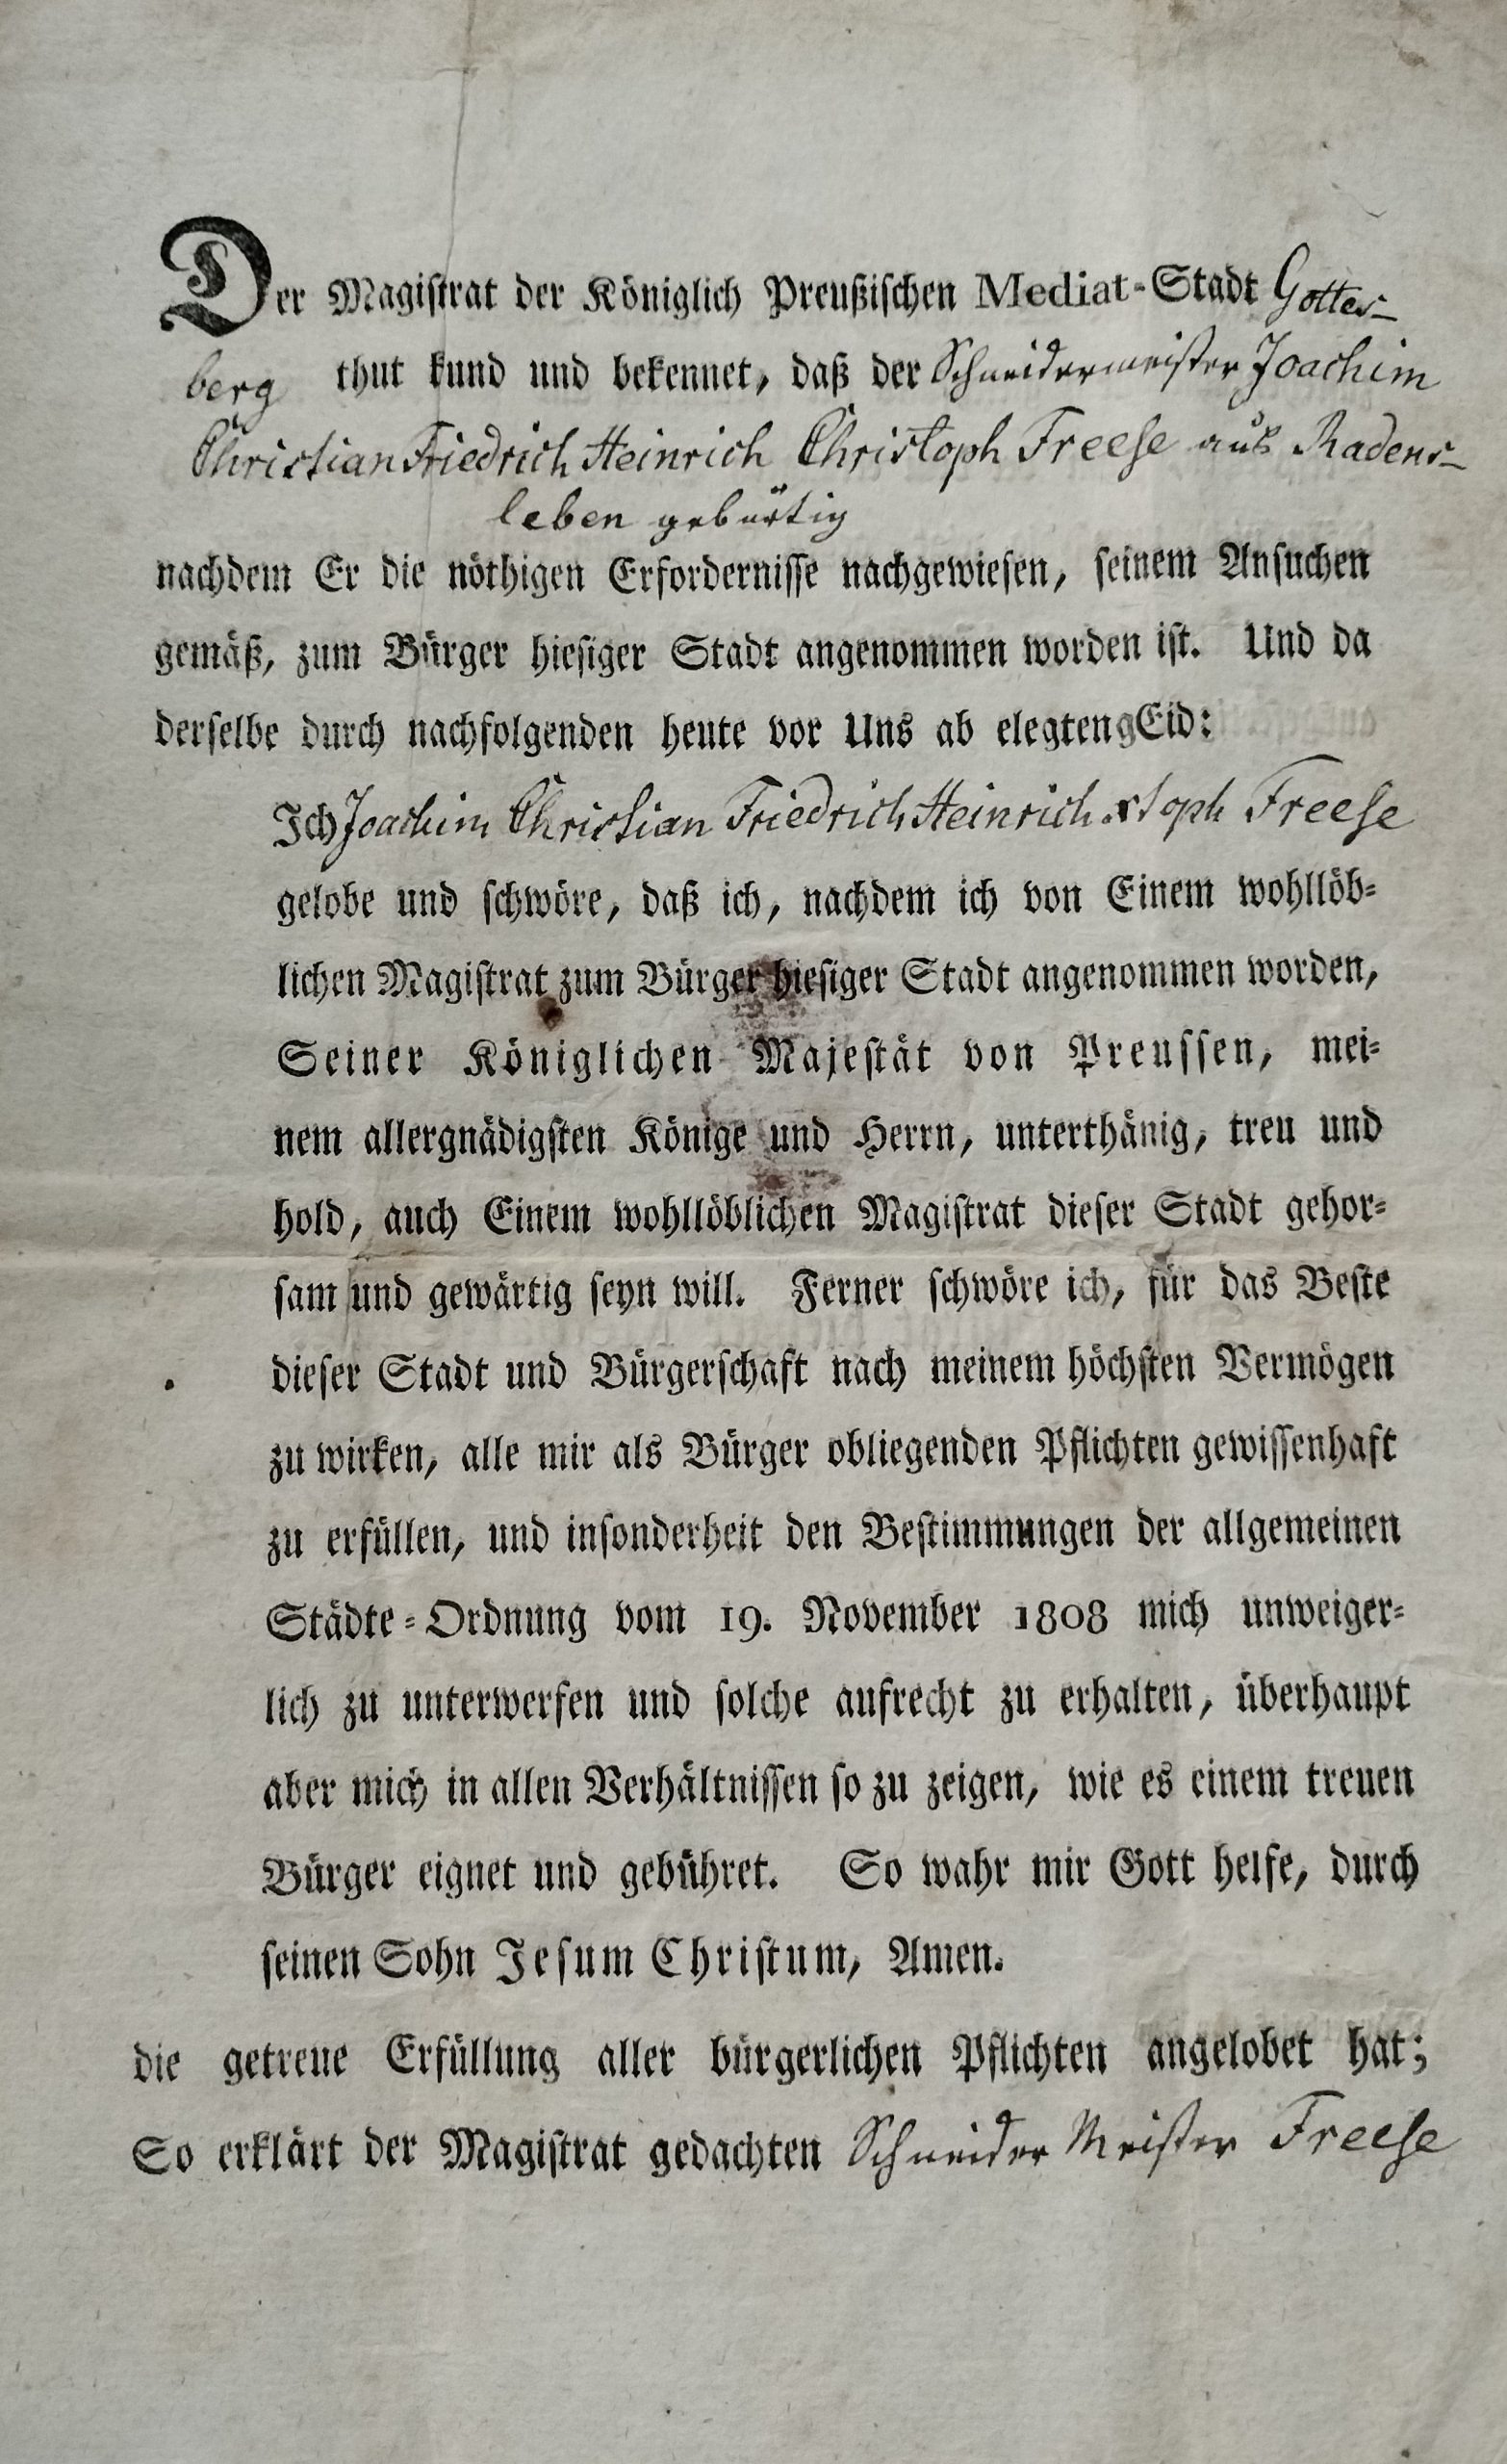 Der Magistrat der Königlich Preußischen Mediat-Stadt Gottes-
berg thut kund und bekennet, daß der Schneidermeister Joachim
Christian Friedrich Heinrich Christoph Freese aus Radens-
leben gebürtig
nachdem Er die nöthigen Erfordernisse nachgewiesen, seinem Ansuchen
gemäß, zum Bürger hiesiger Stadt angenommen worden ist. Und da
derselbe durch nachfolgenden heute vor Uns ab elegtengEid:
Ich Joachim Christian Friedrich Heinrich Xstoph Freese
gelobe und schwöre, daß ich, nachdem ich von Einem wohllöb-
lichen Magistrat zum Bürger hiesiger Stadt angenommen worden,
Seiner Königlichen Majestät von Preussen, mei-
nem allergnädigsten Könige und Herrn, unterthänig, treu und
hold, auch Einem wohllöblichen Magistrat dieser Stadt gehor-
sam und gewärtig seyn will. Ferner schwöre ich, für das Beste
dieser Stadt und Bürgerschaft nach meinem höchsten Vermögen
zu wirken, alle mir als Bürger obliegenden Pflichten gewissenhaft
zu erfüllen, und insonderheit den Bestimmungen der allgemeinen
Städte-Ordnung vom 19. November 1808 mich unweiger-
lich zu unterwerfen und solche aufrecht zu erhalten, überhaupt
aber mich in allen Verhältnissen so zu zeigen, wie es einem treuen
Bürger eignet und gebühret. So wahr mir Gott helfe, durch
seinen Sohn Jesum Christum, Amen.
die getreue Erfüllung aller bürgerlichen Pflichten angelobet hat;
So erklärt der Magistrat gedachten Schneider Meister Freese